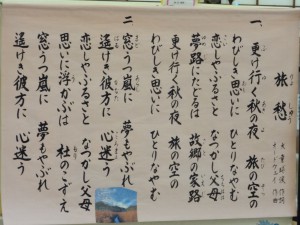 旅愁
犬童球渓 作詞
オードウェイ 作曲
一、更け行く秋の夜 旅の空の
わびしき思いに ひとりなやむ
恋しやふるさと なつかし父母
夢路にたどるは 故郷の家路
更け行く秋の夜 旅の空の
わびしき思いに ひとりなやむ
二 窓うつ嵐に 夢もやぶれ
遥けき彼方に 心迷う
恋しやふるさと なつかし父母
思いに浮かぶは 杜のこずえ
窓うつ嵐に 夢もやぶれ
遥けき彼方に 心迷う